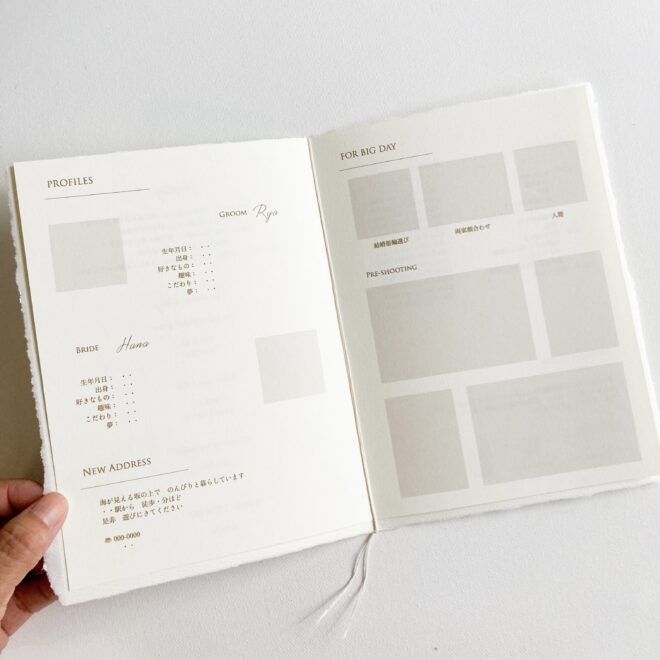 PROFILES
GROOM Ryo
生年月日： ・・
出身： ・・
好きなもの： ・・
趣味： ・・
こだわり： ・・
夢： ・・
BRIDE Hana
生年月日： ・・
出身： ・・
好きなもの： ・・
趣味： ・・
こだわり： ・・
夢： ・・
NEW ADDRESS
海が見える坂の上で のんびりと暮らしています
・・駅から 徒歩・分ほど
是非 遊びにきてください
〒000-0000
・・
FOR BIG DAY
結婚指輪選び
両家顔合わせ
入籍
PRE-SHOOTING